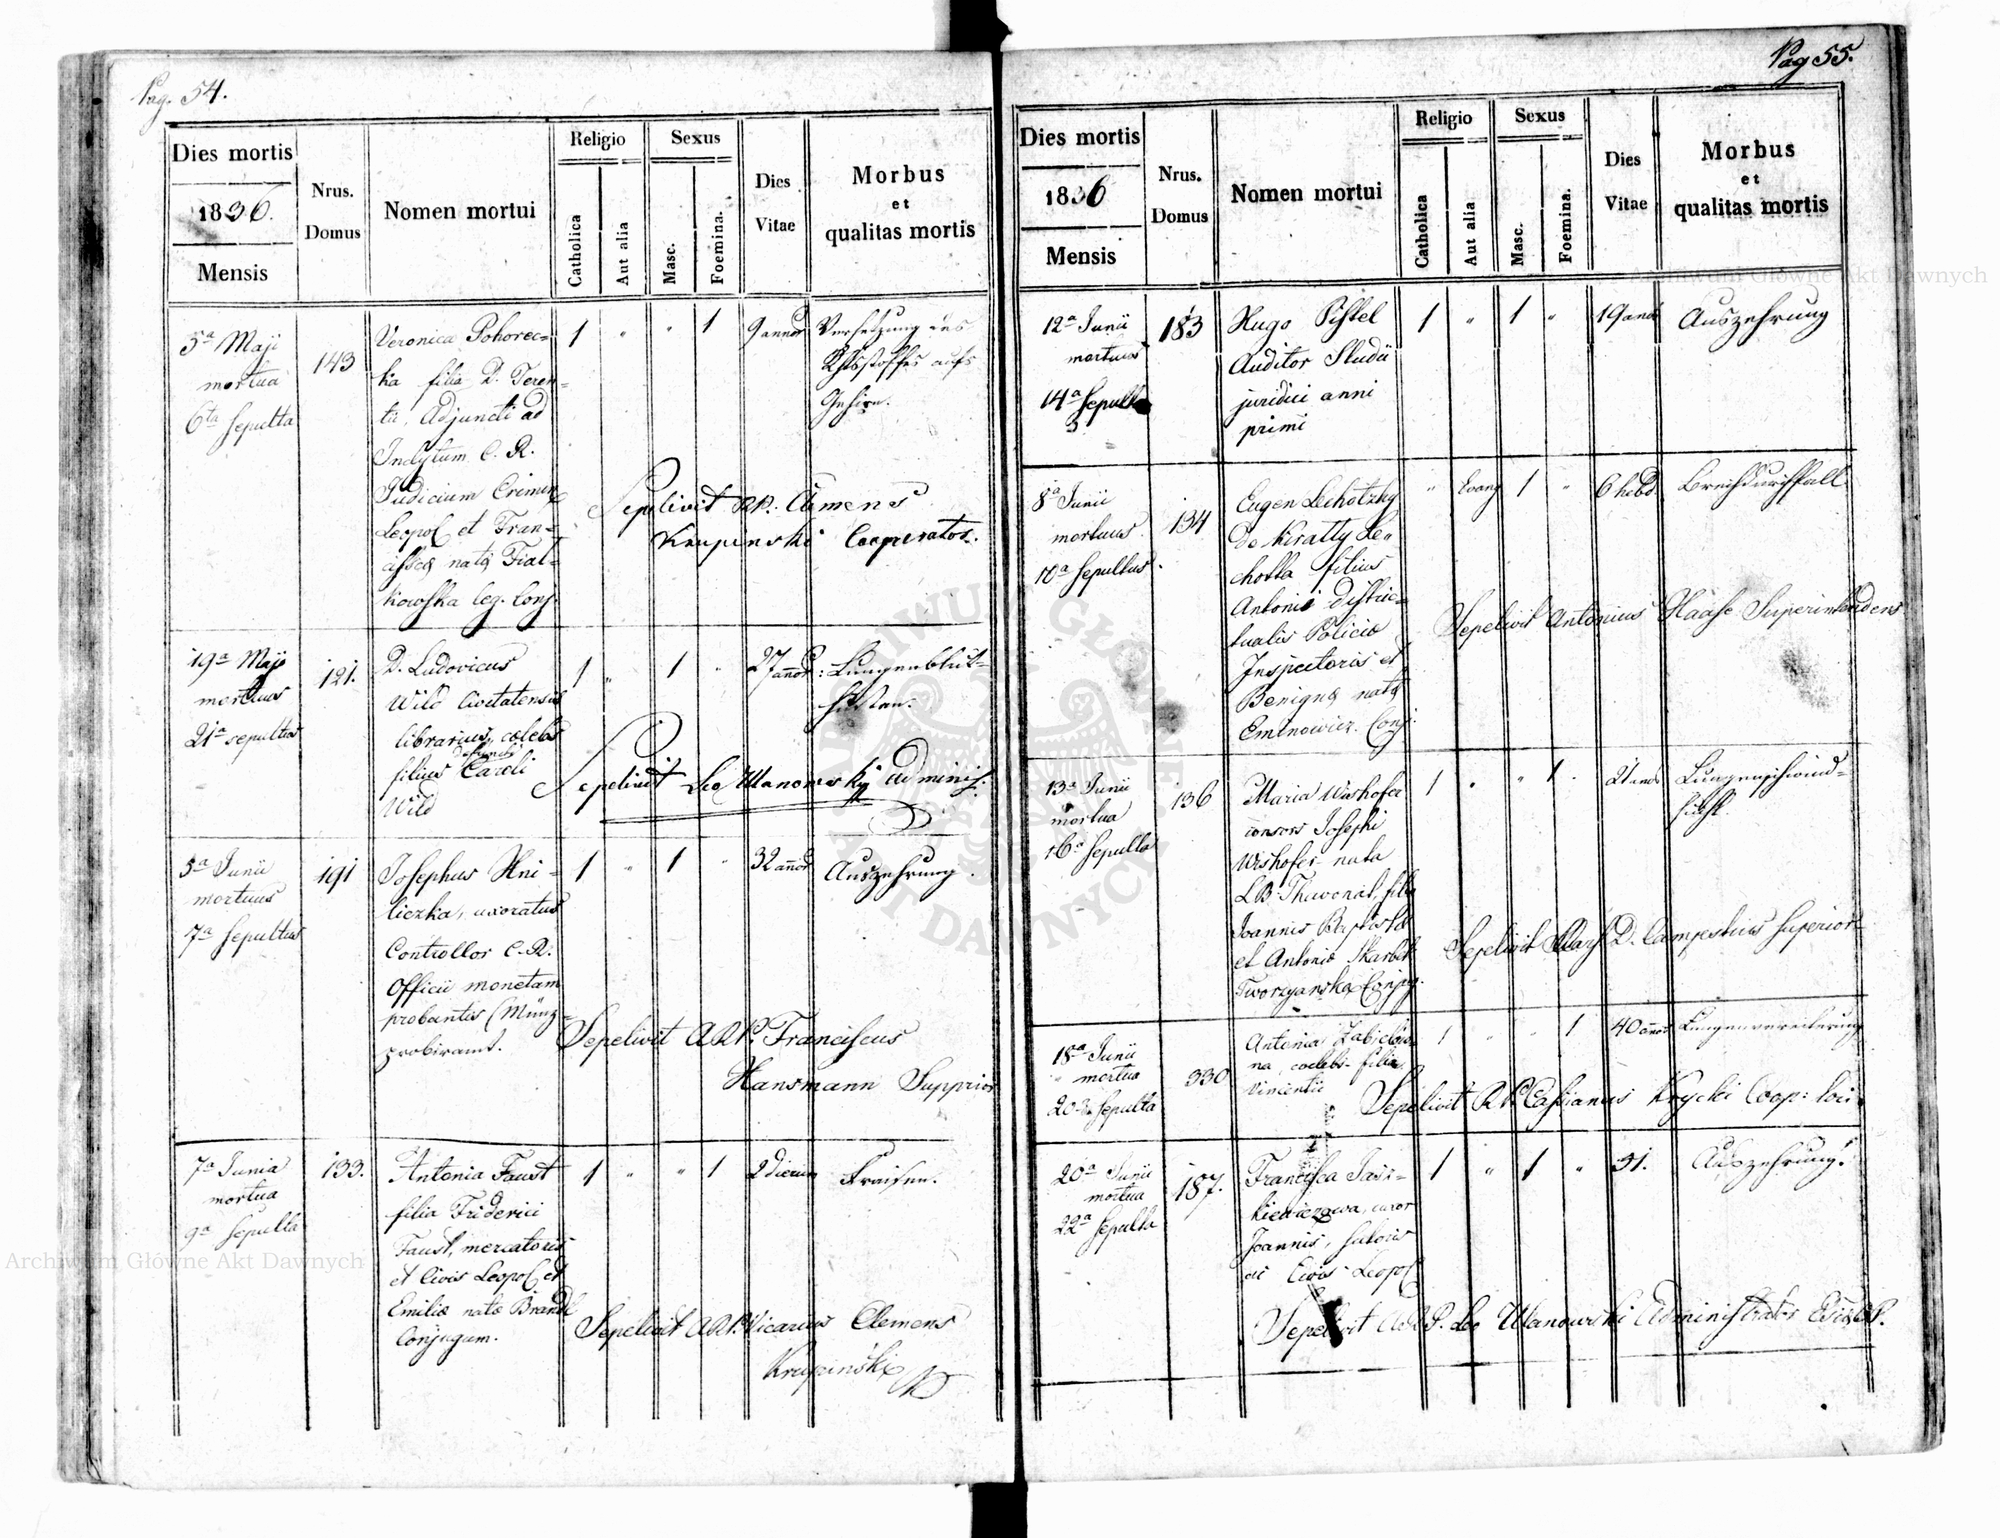 Pag. 54.
Dies mortis
1836.
Mensis
Nrus.
Domus
Nomen mortui
Religio
Catholica
Aut alia
Sexus
Masc.
Foemina.
Dies
Vitae
Morbus
et
qualitas mortis
5a Maji
mortua
6ta sepulta
143
Veronica Pohorec=
ka filia D. Teren=
tii, Adjuncti ad
Inclytum C. R.
Judicium Crimin
Leopol et Fran=
natae Fial=
kowska leg. Conj.
1 " " 1
9 annor
Versetzung des
aufs
Gehirn.
Sepelivit RP. Clemens
Krupinski Cooperator.
19a Maji
mortuus
21a sepultus
121.
D. Ludovicus
Wild Civitatensis
librarius, coelebs
defuncti
filius Caroli
Wild
1 " 1 "
27 annor:
Lungenblut=
husten.
Sepelivit Leo Ulanowski adminis.
5a Junii
mortuus
7a sepultus
191
Josephus Hni=
liczka, uxoratus
Controllor C. R.
Officii monetam
probantis (Münz=
probiramt.
1 " 1 "
32 annor
Auszehrung.
Sepelivit ARP. Franciscus
Hansmann Supprior
7a Junia
mortua
9a sepulta
133.
Antonia Faust
filia Friderici
Faust, mercatoris
et Civis Leopol et
Emiliae natae Brandl
Conjugum.
1 " " 1
2 dierum
Fraisen.
Sepelivit ARP. Vicarius Clemens
Krupinski
Pag 55.
Dies mortis
1836
Mensis
Nrus.
Domus
Nomen mortui
Religio
Catholica
Aut alia
Sexus
Masc.
Foemina.
Dies
Vitae
Morbus
et
qualitas mortis
12a Junii
mortuus
14a sepult
183
Hugo Pistel
Auditor Studii
juridici anni
primi
1 " 1 "
19 annor
Auszehrung
8a Junii
mortuus
10a sepultus.
134
Eugen Lechotzky
de Kiratty Le=
chotta filius
Antonii distric=
tualis Policiae
Inspectoris et
Benignae natae
Eminowicz. Conj.
" Evang 1 "
6 hebd.
Brechdurchfall.
Sepelivit Antonius Haase Superintendens
13a Junii
mortua
16a sepulta
136
Maria Wishofer
consors Josephi
Wishofer nata
L B. filia
Joannis Baptistae
et Antoniae Skarbek
Tworzyanska Conjug.
1 " " 1
21 annor
Lungenschwind=
sucht.
Sepelivit D. Campestris Superior
18a Junii
mortua
20a sepulta
330
Antonia
na, coelebs filia
Vincentii
1 " " 1
40 annor
Lungenvereiterung
Sepelivit RP. Cassianus Krycki Coop: loci.
20a Junii
mortua
22a sepulta
187.
Francisca Jasi=
kiewiczowa, uxor
Joannis, sutoris
ac Civis Leopol
1 " 1 "
51.
Auszehrung.
Sepelivit ARP. Leo Ulanowski Administrator
Archiwum Główne Akt Dawnych
Archiwum Główne Akt Dawnych
ARCHIWUM GŁÓWNE AKT DAWNYCH